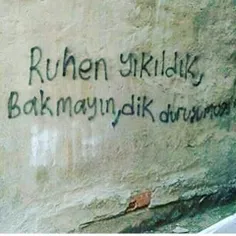 Ruhen yıkıldık,
Bakmayın, dik duruşumuza